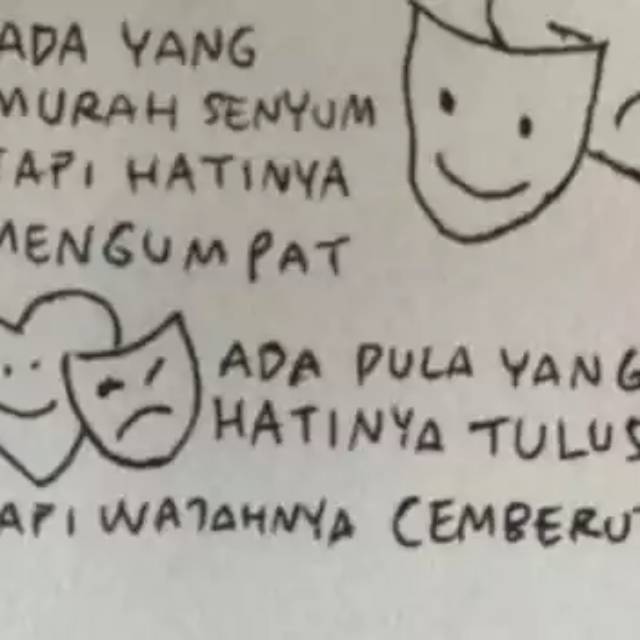 ADA YANG
MURAH SENYUM
TAPI HATINYA
MENGUMPAT
ADA PULA YANG
HATINYA TULUS
TAPI WAJAHNYA CEMBERUT